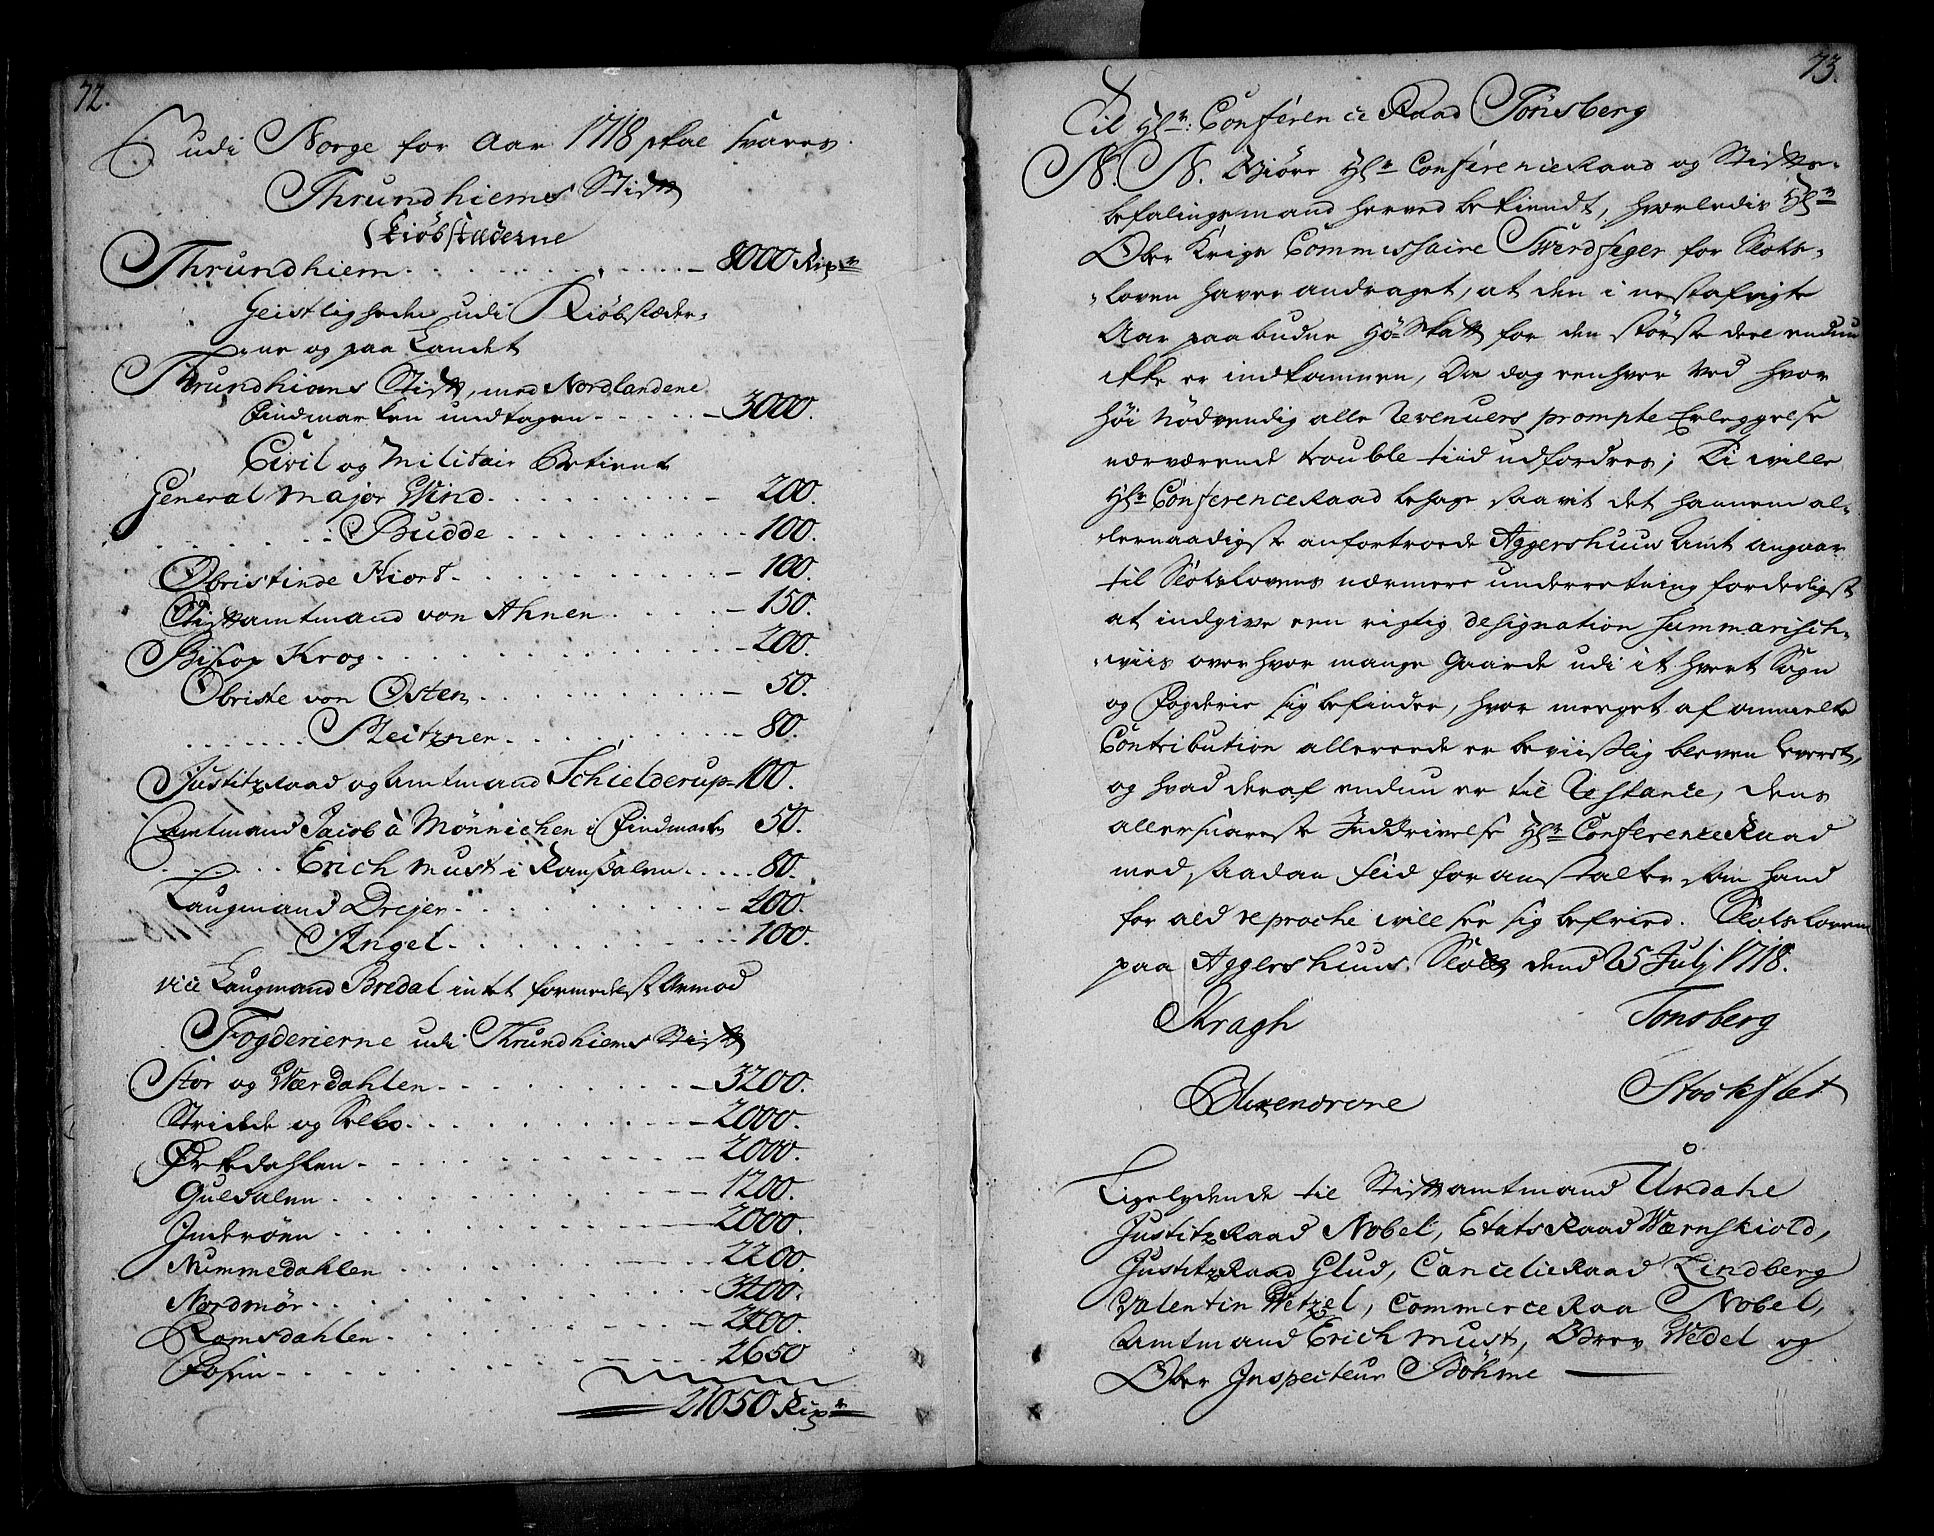 72.
udi Norge for Aar 1718 skal svares
Thrundhiems Stift
Kiöbstæderne
Thrundhiem - 8000 Rixdr
Geistligheden udi Kiöbstæder-
ne og paa Landet
Thrundhiems Stift, med Nordlandene
Findmarken undtagen - 3000.
Civil og Militair Betiente
General Major Wind - 200.
Budde - 100.
Obristinde Hiort - 100.
Stiftamtmand von Ahnen - 150.
Biskop Krog - 200.
Obriste von Osten - 50.
Pleitzner - 80.
Justitzraad og Amtmand Schielderup - 100.
Amtmand Jacob à Mönnichen i Findmarken 50.
Erich Must i Romsdalen - 80.
Laugmand Drejer - 200.
Angel - 100.
vice Laugmand Bredal intet formedelst Armod
Fogderierne udi Thrundhiems Stift
Stör og Værdahlen - 3200.
Strinde og Selbo - 2000.
Ørkedahlen - 2000.
Guldalen - 1200.
Inderöen - 2000.
Nummedahlen - 2200.
Nordmör - 3400.
Romsdahlen - 2400.
Fosen - 2650
21050 Rixdr
73.
Til Hr: Conference Raad Tönsberg
N. N. Giöre Hr Conference Raad og Stifts-
befalingsmand herved bekiendt, hvorledis Hr
Ober Krigs Commissaire Swerdfeger for Slots-
loven haver andraget, at den i nestafvigte
Aar paabudne Hö-Skatt for den störste deel endnu
ikke er indkommen, Da dog eenhver ved hvor
höi nödvendig alle Revenuers prompte Erleggelse
nærværende trouble tiid udfordres; Di wille
Hr Conference Raad behage saavit det hannem al-
lernaadigst anfortroede Aggershuus Amt angaar
til Slotslovens nærmere underretning forderligst
at indgive een rigtig designation summarisch-
wiis over hvor mange Gaarde udi it hvert Sogn
og Fogderie sig befinder, hvor meeget af anmelte
Contribution allereede er beviislig bleven leveret,
og hvad deraf endnu er til Restance, dens
allersnareste Inddrivelse Hr Conference Raad
med saadan fliid foranstalter som hand
for ald reproche will see sig befried. Slotsloven
paa Aggershuus Slott dend 25 Julj 1718.
Kragh Tonsberg
Blixencrone Stockflet
Ligelydende til Stiftamtmand Undahl
Justitz Raad Nobel, Etats Raad Wærnskiold,
Justitz Raad Glud, Cancelie Raad Lindberg
Valentin Wetzel, Commerce Raa Nobel,
Amtmand Erich Must, Grev Wedel og
Ober Inspecteur Böhme